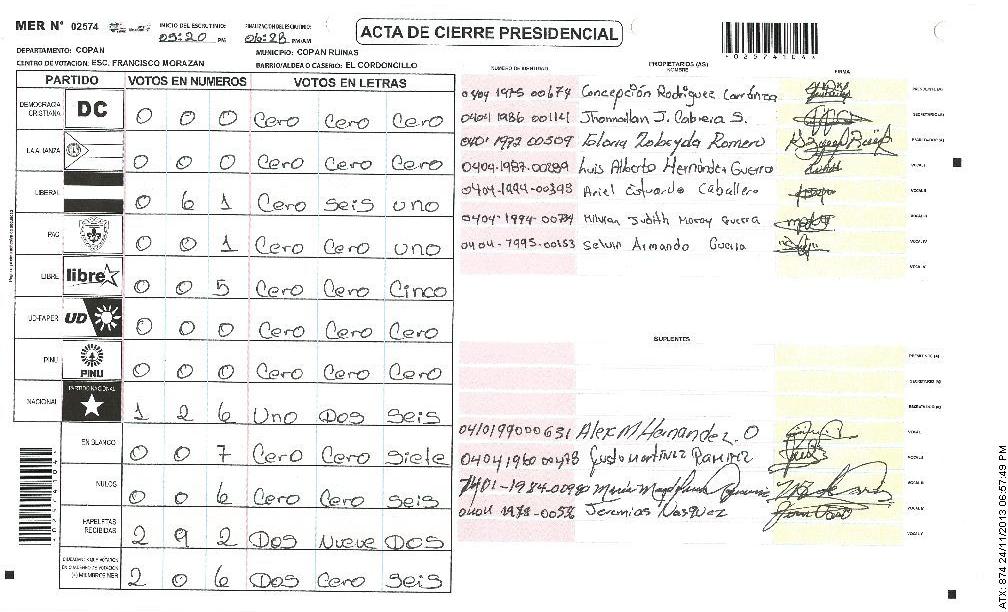 MER N° 02574 INICIO DEL ESCRUTINIO: 05:20 PM FINALIZACION DEL ESCRUTINIO: 06:28 PM/AM
ACTA DE CIERRE PRESIDENCIAL
025741041
DEPARTAMENTO: COPAN MUNICIPIO: COPAN RUINAS
CENTRO DE VOTACION: ESC. FRANCISCO MORAZAN BARRIO/ALDEA O CASERIO: EL CORDONCILLO
PARTIDO VOTOS EN NUMEROS VOTOS EN LETRAS
DEMOCRACIA CRISTIANA DC 0 0 0 Cero Cero Cero
LA ALIANZA 0 0 0 Cero Cero Cero
LIBERAL 0 6 1 Cero Seis Uno
PAC 0 0 1 Cero Cero Uno
LIBRE libre 0 0 5 Cero Cero Cinco
UD-FAPER UD 0 0 0 Cero Cero Cero
PINU PINU 0 0 0 Cero Cero Cero
NACIONAL PARTIDO NACIONAL 1 2 6 Uno Dos Seis
EN BLANCO 0 0 7 Cero Cero Siete
NULOS 0 0 6 Cero Cero Seis
PAPELETAS RECIBIDAS 2 9 2 Dos Nueve Dos
(+) MIEMBROS MER 2 0 6 Dos Cero Seis
NUMERO DE IDENTIDAD PROPIETARIOS (AS) NOMBRE FIRMA
0404 1975 00674 Concepción Rodriguez Carranza PRESIDENTE (A)
0404 1986 001141 Jhonnatan J. Cabrera S. SECRETARIO (A)
0401 1972 00509 Zobeyda Romero
0404-1987-00289 Luis Alberto Hernández Guerra VOCAL I
0404-1994-00393 Ariel Estuardo Caballero VOCAL II
0404-1994-007 Judith Guerra VOCAL III
0404-1995-00153 Selvin Armando Guerra VOCAL IV
VOCAL V
SUPLENTES
PRESIDENTE (A)
SECRETARIO (A)
ESCRUTADOR (A)
0410199000631 Alex M Hernandez. O VOCAL I
0404 1960 00478 Gusto Martinez Ramirez VOCAL II
-1984-00980 Maria VOCAL III
0404 1978-005 Jeremias Vasquez VOCAL IV
VOCAL V
ATX: 874 24/11/2013 06:57:49 PM